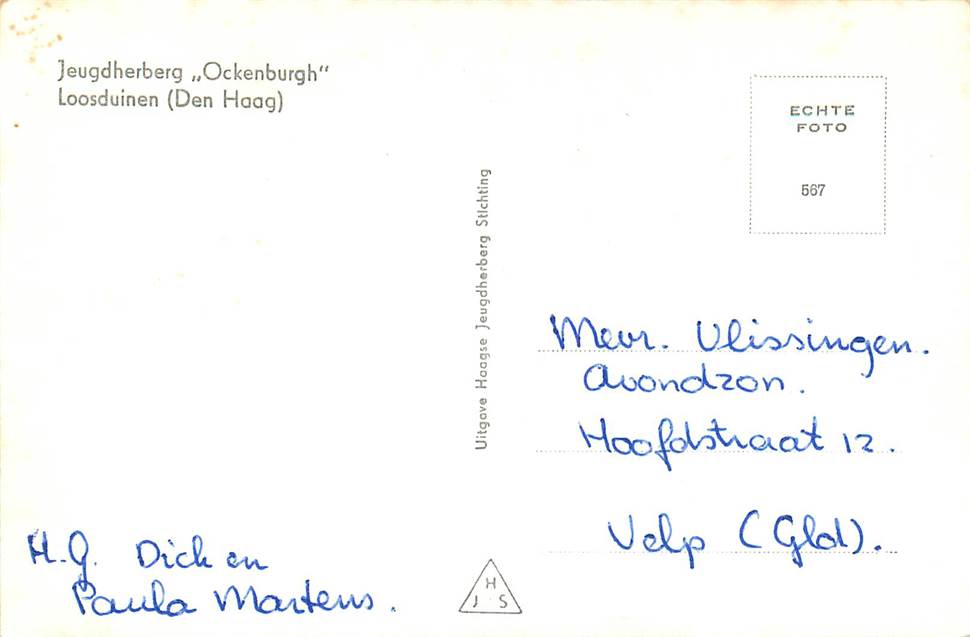 Jeugdherberg „Ockenburgh"
Loosduinen (Den Haag)
ECHTE
FOTO
567
Uitgave Haagse Jeugdherberg Stichting
Mevr. Vlissingen.
Avondzon.
Hoofdstraat 12.
Velp (Gld).
H.G. Dick en
Paula Martens.
H
J S